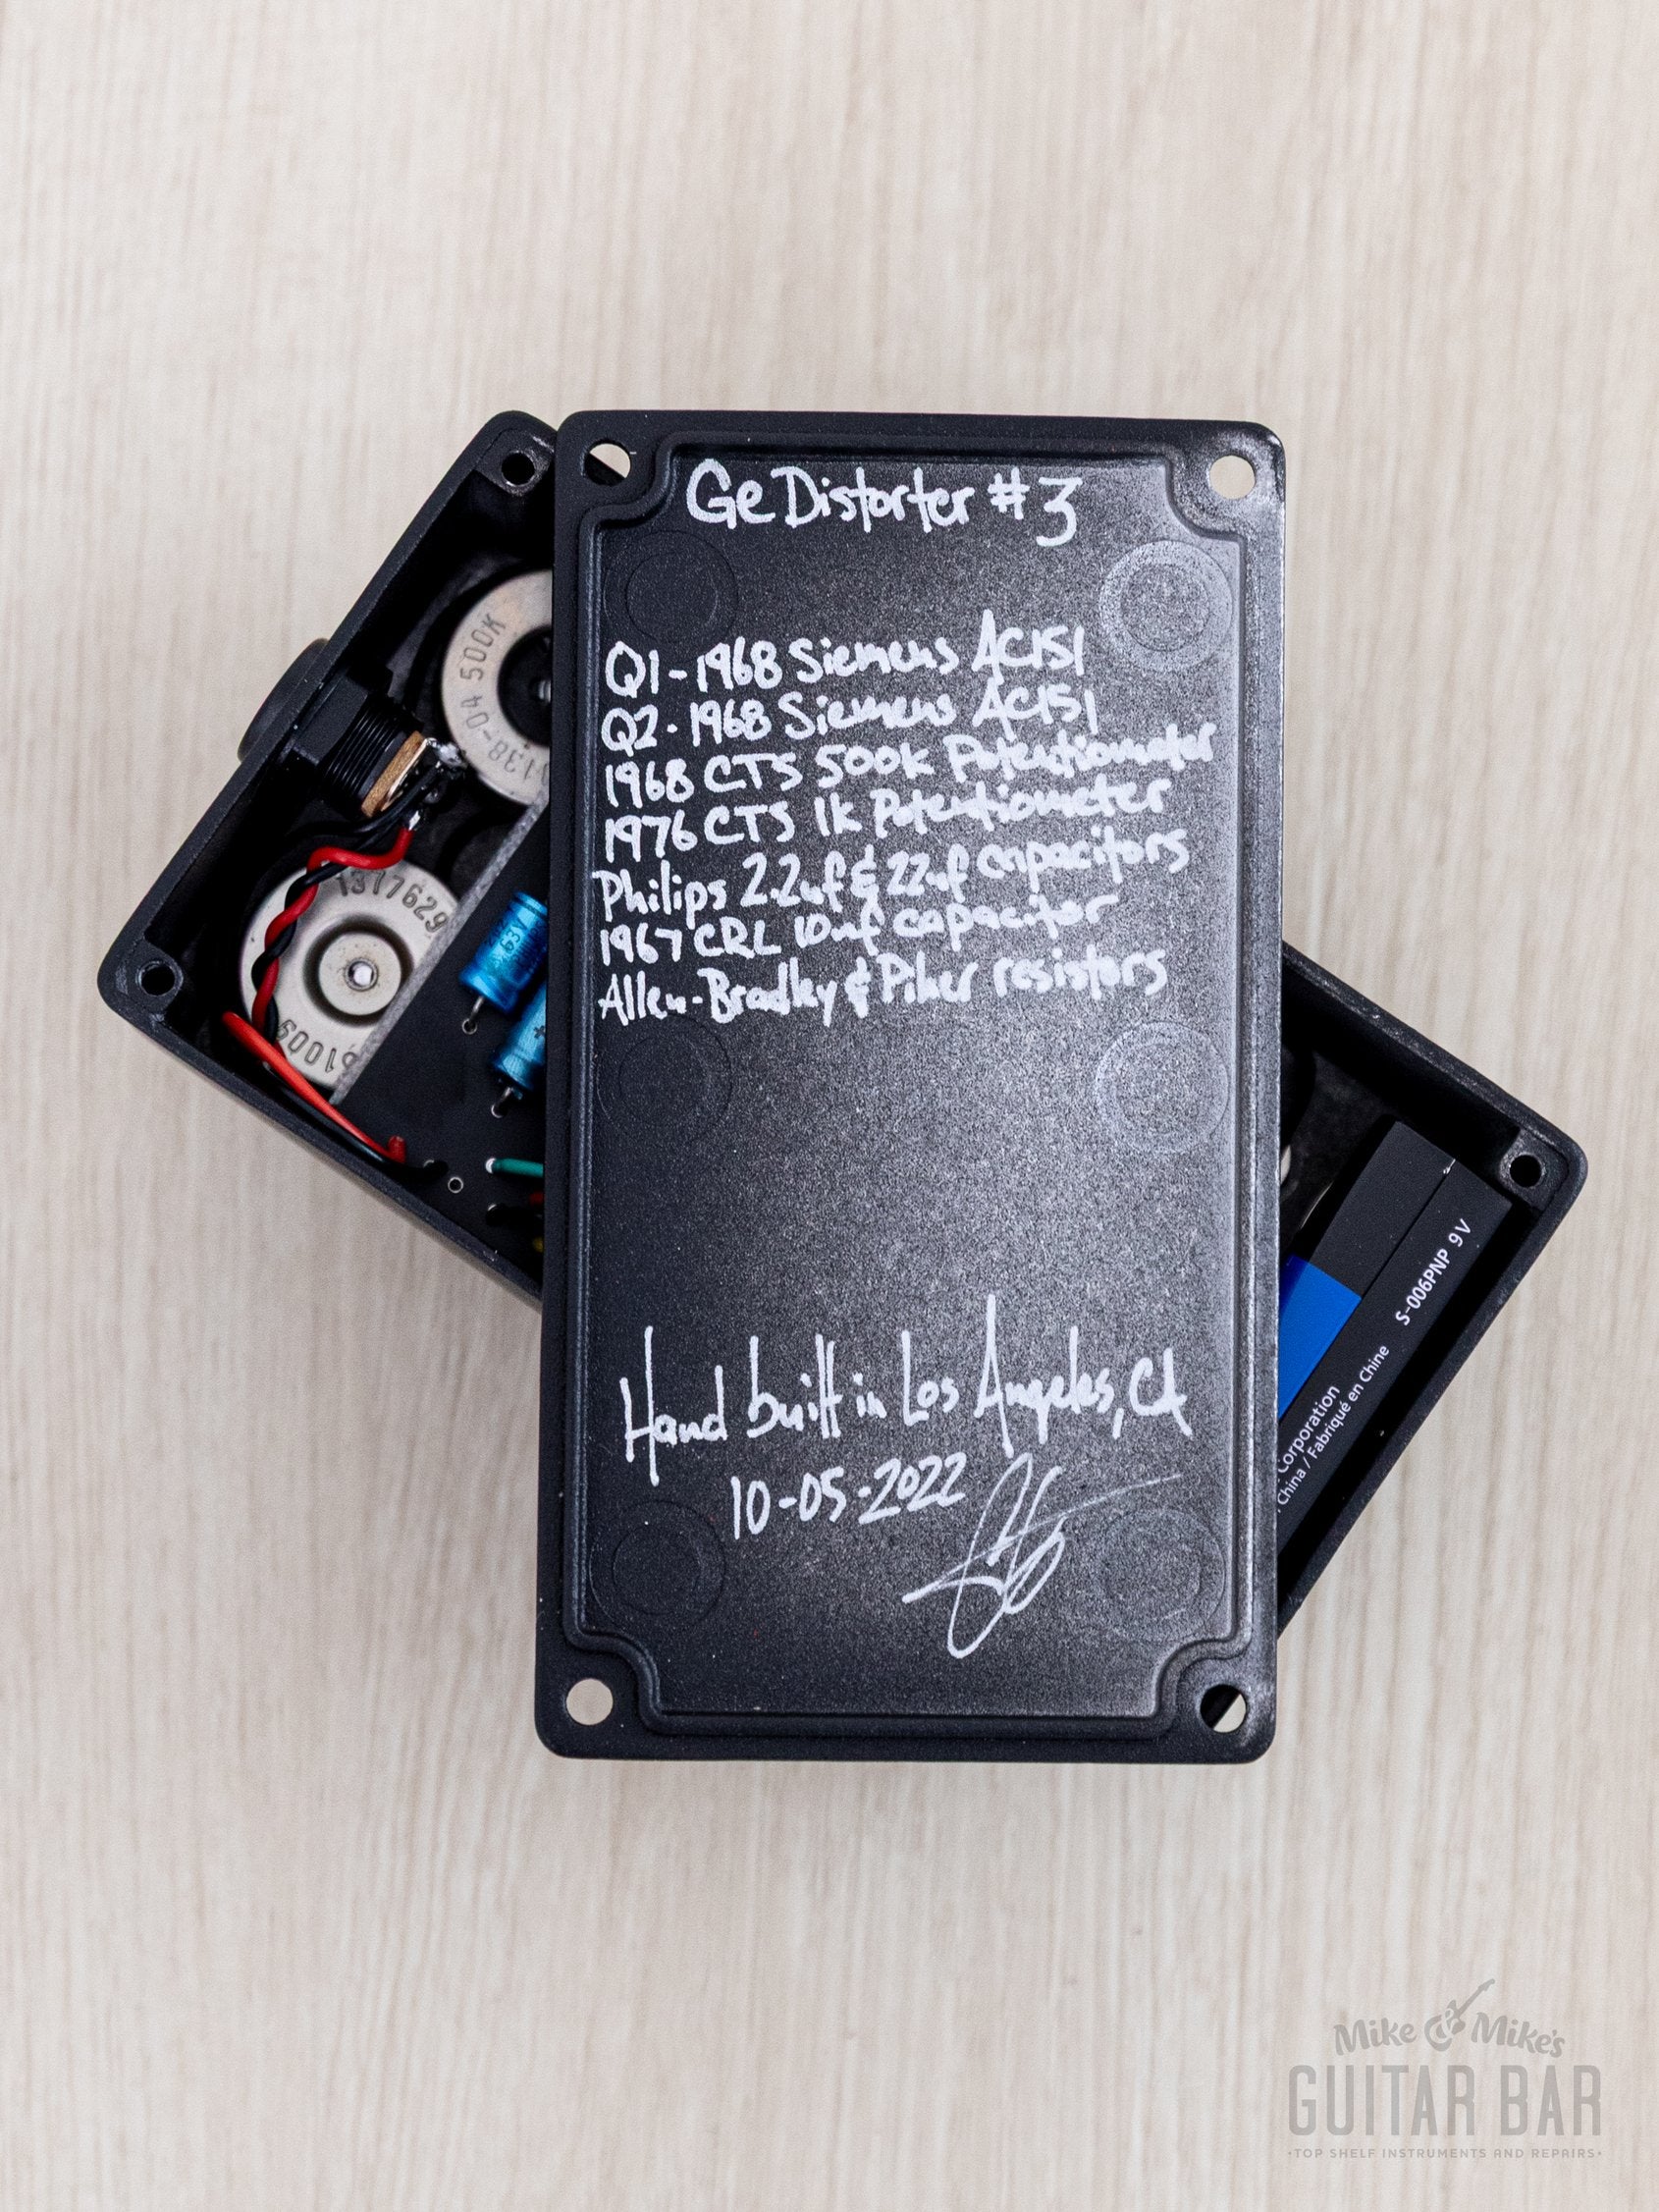 Ge Distorter #3
Q1-1968 Siemens AC151
Q2-1968 Siemens AC151
1968 CTS 500k Potentiometer
1976 CTS 1k Potentiometer
Philips 2.2uf & 22uf capacitors
1967 CRL 10uf capacitor
Allen-Bradley & Piher resistors
Hand built in Los Angeles, CA
10-05-2022
138-04 500K
1377629
63V
S-006PNP 9V
Corporation
China / Fabriqué en Chine
Mike & Mike's
GUITAR BAR
•TOP SHELF INSTRUMENTS AND REPAIRS•